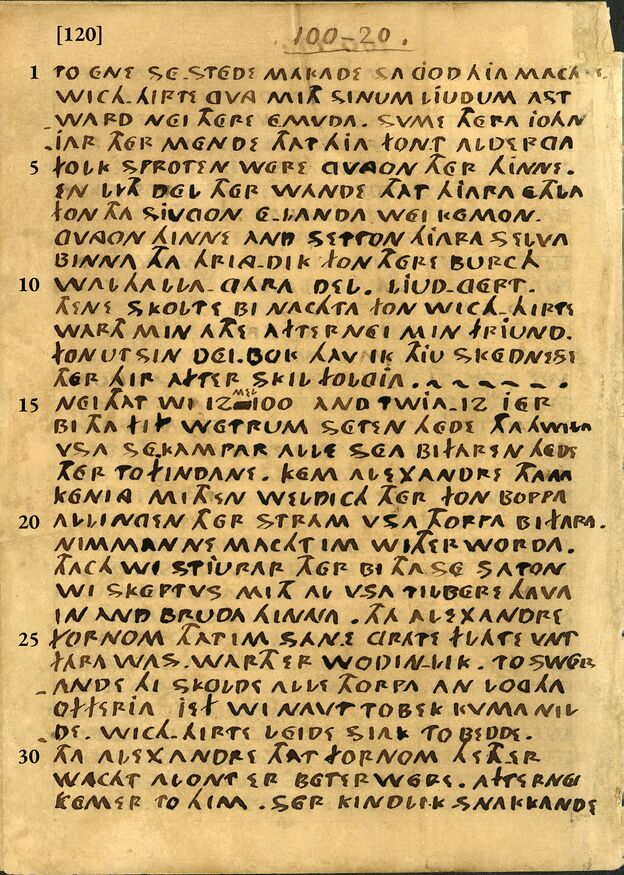 [120]
100-20.
1 TO ENE SE-STEDE MAKADE SA GOD HIA MACHTE.
WICH-HIRTE GVNG MITH SINUM LIUDUM AST
WARD NEI THERE EMUDA. SVME THERA IOHN
-IAR THER MENDE THAT HIA FONT ALDERGA
5 FOLK SPROTEN WERE GVNGON THER HINNE.
EN LITH DEL THER WANDE THAT HIARA ETHLA
FON THA SIVGON E-LANDA WEI KEMON.
GVNGON HINNE AND SETTON HIARA SELVA
BINNA THA HRING-DIK FON THERE BURCH
10 WALHALLA-GARA DEL. LIUD-GERT.
THENE SKOLTE BI NACHTA FON WICH-HIRTE
WARTH MIN ATHE AFTERNEI MIN FRIUND.
FON UT SIN DEI-BOK HAV IK THIU SKEDNESE
THER HIR AFTER SKIL FOLGJA. ~ ~ ~ ~ ~ .
15 NEI THAT WI 12 MEL 100 AND TWIA-12 IER
BI THA FIF WETRUM SETEN HEDE THAHWILA
VSA SE-KAMPAR ALLE SEA BIFAREN HEDE
THER TO FINDANE. KEM ALEXANDRE THAM
KENIG MITH EN WELDICH HER FON BOPPA
20 ALLINGEN THER STRAM VSA THORPA BIFARA.
NIMMAN NE MACHT IM WITHER WORDA.
THACH WI STIURAR THER BI THA SE SATON
WI SKEPTVS MITH AL VSA TILBERE HAVA
IN AND BRUDA HINNA. THA ALEXANDRE
25 FORNOM THAT IM SA NE GRATE FLATE VNT
FARA WAS. WARTH ER WODIN-LIK. TO SWER
-ANDE HI SKOLDE ALLE THORPA AN LOGHA
OFFERIA IEF WI NAVT TO BEK KVMA NIL
DE. WICH-HIRTE LEIDE SIAK TO BEDDE.
30 THA ALEXANDRE THAT FORNOM HETH ER
WACHT ALONT ER BETER WERE. AFTERNEI
KEMER TO HIM. SER KINDLIK SNAKKANDE